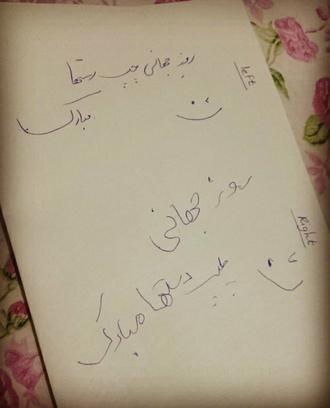 روز جهانی چپ دستها
left
مبارک
روز جهانی
Right
چپ دستها مبارک